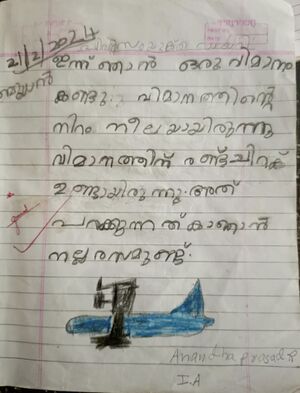 21/2/2024
ഇന്ന് ഞാൻ ഒരു വിമാനം
കണ്ടു. വിമാനത്തിന്റെ
നിറം നീലയായിരുന്നു
വിമാനത്തിന് രണ്ട് ചിറക്
ഉണ്ടായിരുന്നു. അത്
പറക്കുന്നത് കാണാൻ
നല്ല രസമുണ്ട്.
Anandha prasad R
I.A